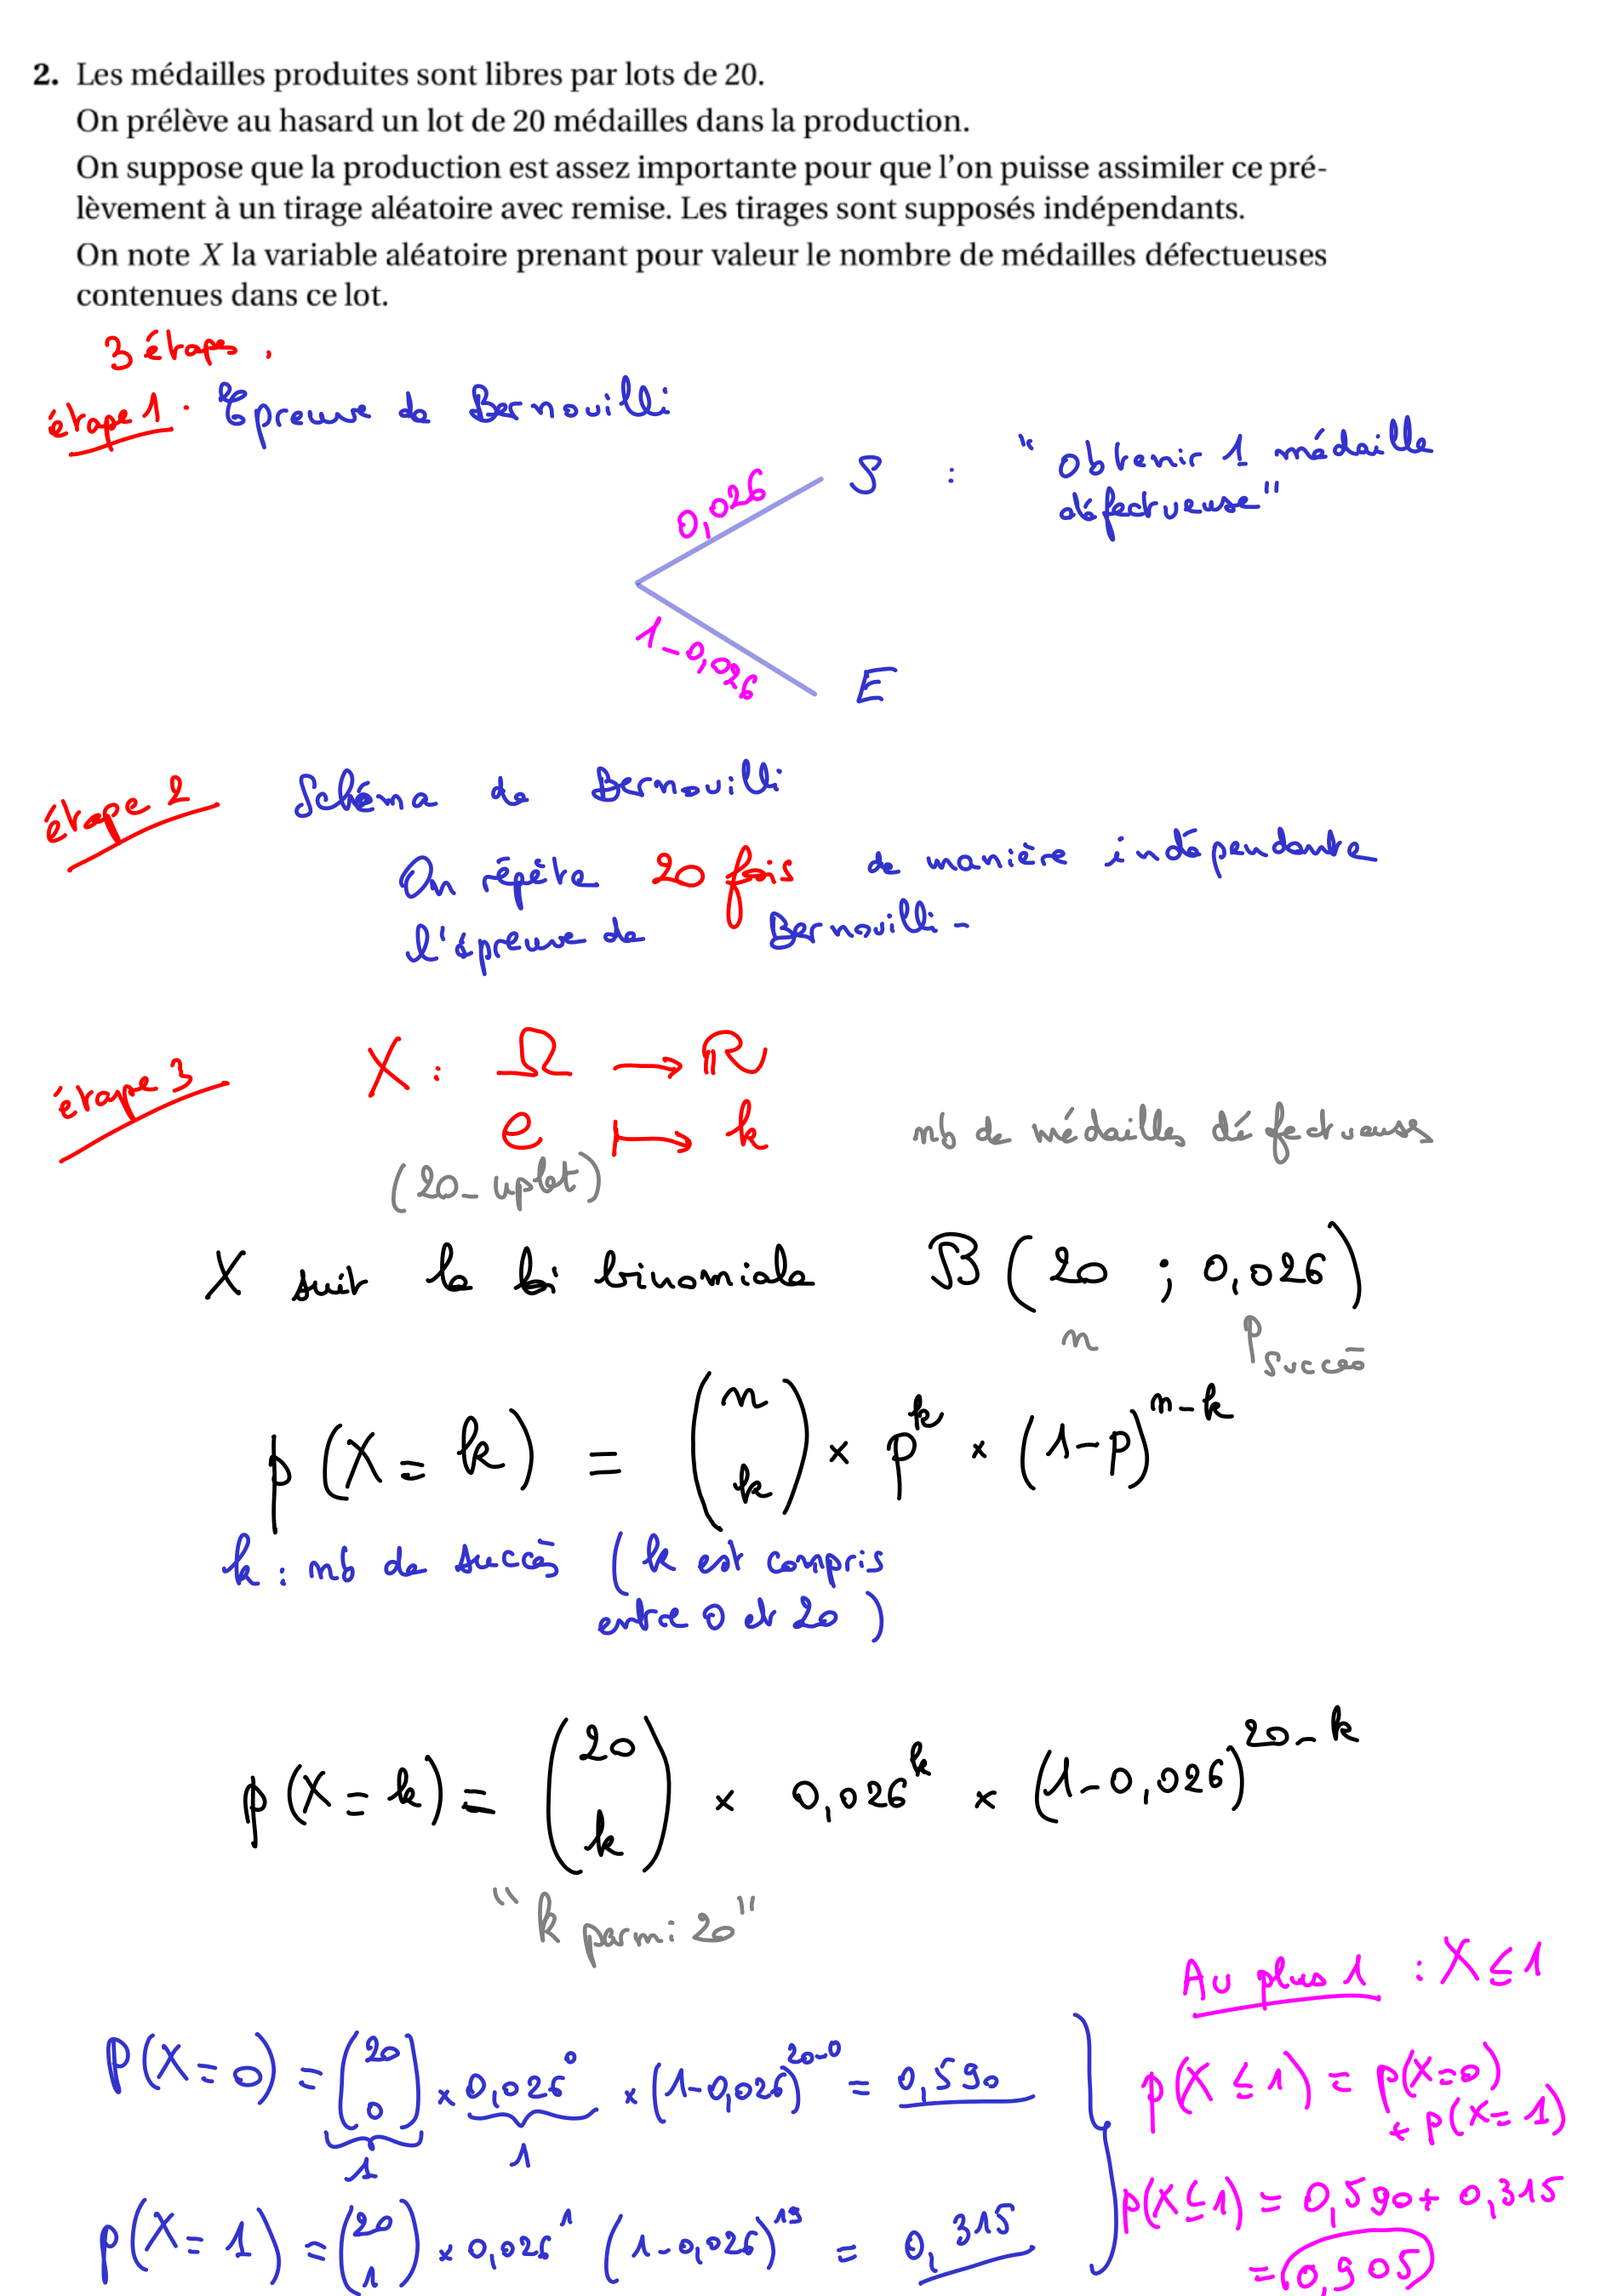 2. Les médailles produites sont libres par lots de 20.
On prélève au hasard un lot de 20 médailles dans la production.
On suppose que la production est assez importante pour que l'on puisse assimiler ce pré-
lèvement à un tirage aléatoire avec remise. Les tirages sont supposés indépendants.
On note X la variable aléatoire prenant pour valeur le nombre de médailles défectueuses
contenues dans ce lot.
3 étapes.
étape 1. Epreuve de Bernouilli
0,026 S : "Obtenir 1 médaille
défectueuse"
1-0,026 E
étape 2 Schéma de Bernouilli
On répète 20 fois de manière indépendante
l'épreuve de Bernouilli-
étape 3 X : Ω → ℝ
e ↦ k nb de médailles défectueuses
(20-uplet)
X suit la loi binomiale B(20 ; 0,026)
n p succès
p(X = k) = (n k) × p^k × (1-p)^(n-k)
k : nb de succès (k est compris
entre 0 et 20)
p(X = k) = (20 k) × 0,026^k × (1-0,026)^(20-k)
"k parmi 20"
Au plus 1 : X ≤ 1
P(X = 0) = (20 0) × 0,026^0 × (1-0,026)^(20-0) = 0,590
1 1
p(X ≤ 1) = p(X=0)
+ p(X=1)
p(X = 1) = (20 1) × 0,026^1 (1-0,026)^19 = 0,315
p(X ≤ 1) = 0,590 + 0,315
= 0,905